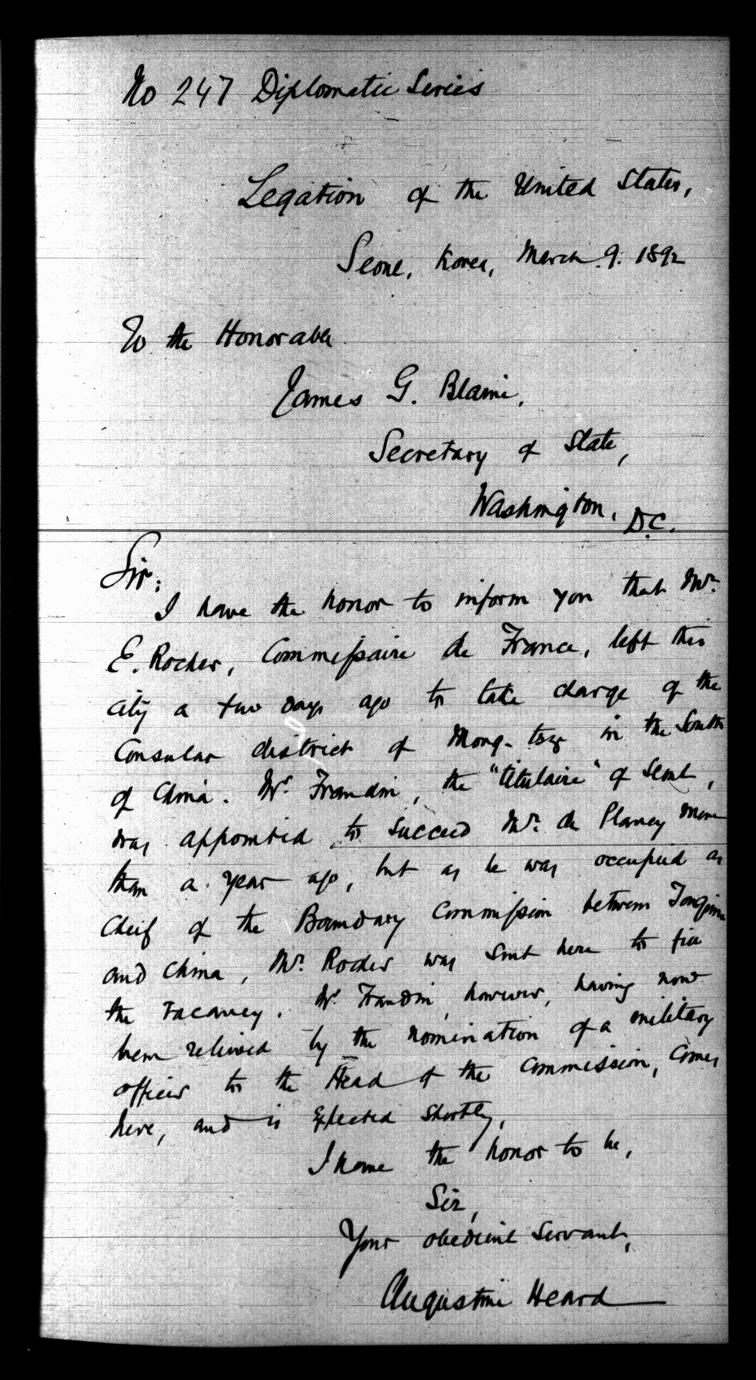 No 247 Diplomatic Series
Legation of the United States,
Seoul, Korea, March 9. 1892
To the Honorable
James G. Blaine,
Secretary of State,
Washington, D.C.
Sir:
I have the honor to inform you that Mr.
E. Rocher, Commissaire de France, left this
city a few days ago to take charge of the
Consular district of Mong-tsz in the South
of China. Mr. Frandin, the "titulaire" of Seoul,
was appointed to succeed Mr. de Plancy more
than a year ago, but as he was occupied as
Chief of the Boundary Commission between Tonquin
and China, Mr. Rocher was sent here to fill
the vacancy. Mr. Frandin, however, having now
been relieved by the nomination of a military
officer to the Head of the Commission, comes
here, and is expected shortly.
I have the honor to be,
Sir,
Your obedient Servant,
Augustine Heard